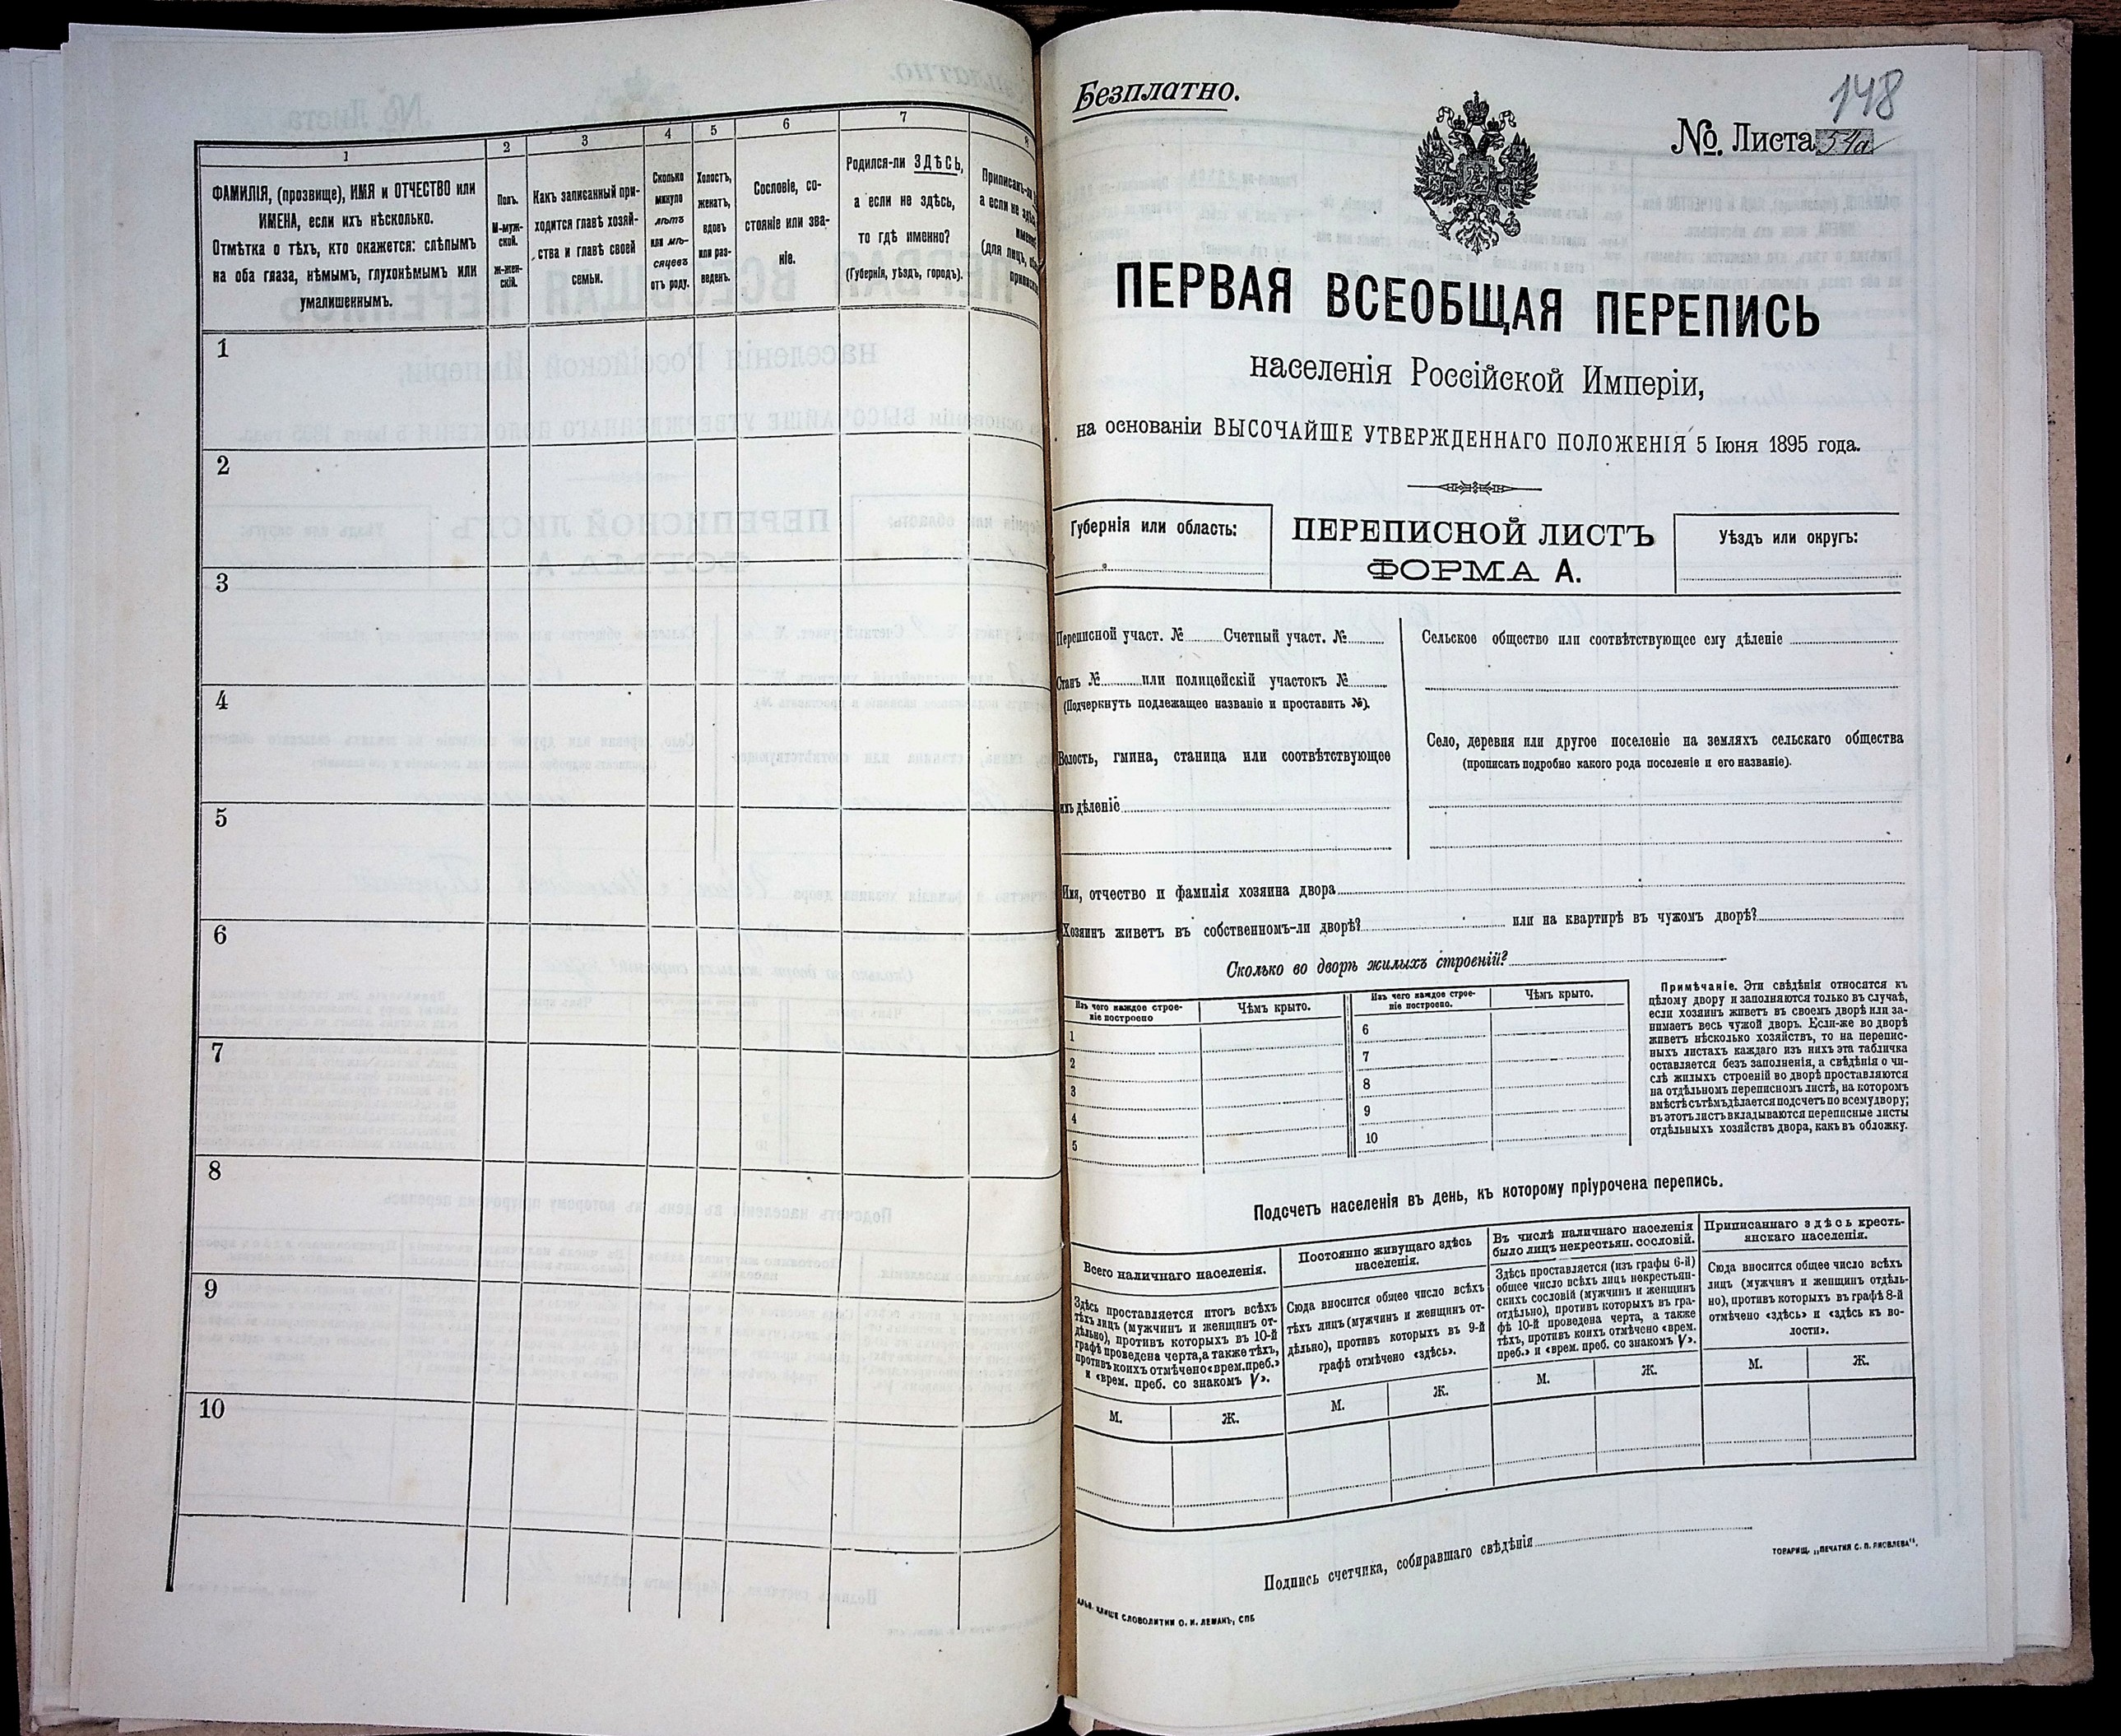 1
2
3
4
5
6
7
8
ФАМИЛІЯ, (прозвище), ИМЯ и ОТЧЕСТВО или
ИМЕНА, если ихъ нѣсколько.
Отмѣтка о тѣхъ, кто окажется: слѣпымъ
на оба глаза, нѣмымъ, глухонѣмымъ или
умалишеннымъ.
Полъ.
М-муж-
ской.
Ж-жен-
скій.
Какъ записанный при-
ходится главѣ хозяй-
ства и главѣ своей
семьи.
Сколько
минуло
лѣтъ
или мѣ-
сяцевъ
отъ роду.
Холостъ,
женатъ,
вдовъ
или раз-
веденъ.
Сословіе, со-
стояніе или зва-
ніе.
Родился-ли ЗДѢСЬ,
а если не здѣсь,
то гдѣ именно?
(Губернія, уѣздъ, городъ).
а если не
(для лицъ,
1
2
3
4
5
6
7
8
9
10
Безплатно.
148
№ Листа 54а
ПЕРВАЯ ВСЕОБЩАЯ ПЕРЕПИСЬ
населенія Россійской Имперіи,
на основаніи ВЫСОЧАЙШЕ УТВЕРЖДЕННАГО ПОЛОЖЕНІЯ 5 Іюня 1895 года.
Губернія или область:
ПЕРЕПИСНОЙ ЛИСТЪ
ФОРМА А.
Уѣздъ или округъ:
Переписной участ. № Счетный участ. №
Станъ № или полицейскій участокъ №
(Подчеркнуть подлежащее названіе и проставить №).
Волость, гмина, станица или соотвѣтствующее
имъ дѣленіе
Сельское общество или соотвѣтствующее ему дѣленіе
Село, деревня или другое поселеніе на земляхъ сельскаго общества
(прописать подробно какого рода поселеніе и его названіе).
Имя, отчество и фамилія хозяина двора
Хозяинъ живетъ въ собственномъ-ли дворѣ? или на квартирѣ въ чужомъ дворѣ?
Сколько во дворѣ жилыхъ строеній?
Изъ чего каждое строе-
ніе построено
Чѣмъ крыто.
Изъ чего каждое строе-
ніе построено.
Чѣмъ крыто.
1
2
3
4
5
6
7
8
9
10
Примѣчаніе. Эти свѣдѣнія относятся къ
цѣлому двору и заполняются только въ случаѣ,
если хозяинъ живетъ въ своемъ дворѣ или за-
нимаетъ весь чужой дворъ. Если-же во дворѣ
живетъ нѣсколько хозяйствъ, то на перепис-
ныхъ листахъ каждаго изъ нихъ эта табличка
оставляется безъ заполненія, а свѣдѣнія о чи-
слѣ жилыхъ строеній во дворѣ проставляются
на отдѣльномъ переписномъ листѣ, на которомъ
вмѣстѣ съ тѣмъ дѣлается подсчетъ по всему двору;
въ этотъ листъ вкладываются переписные листы
отдѣльныхъ хозяйствъ двора, какъ въ обложку.
Подсчетъ населенія въ день, къ которому пріурочена перепись.
Всего наличнаго населенія.
Здѣсь проставляется итогъ всѣхъ
тѣхъ лицъ (мужчинъ и женщинъ от-
дѣльно), противъ которыхъ въ 10-й
графѣ проведена черта, а также тѣхъ,
противъ коихъ отмѣчено «врем. преб.»
и «врем. преб. со знакомъ V».
М. Ж.
Постоянно живущаго здѣсь
населенія.
Сюда вносится общее число всѣхъ
тѣхъ лицъ (мужчинъ и женщинъ от-
дѣльно), противъ которыхъ въ 9-й
графѣ отмѣчено «здѣсь».
М. Ж.
Въ числѣ наличнаго населенія
было лицъ некрестьян. сословій.
Здѣсь проставляется (изъ графы 6-й)
общее число всѣхъ лицъ некрестьян-
скихъ сословій (мужчинъ и женщинъ
отдѣльно), противъ которыхъ въ гра-
фѣ 10-й проведена черта, а также
тѣхъ, противъ коихъ отмѣчено «врем.
преб.» и «врем. преб. со знакомъ V».
М. Ж.
Приписаннаго здѣсь кресть-
янскаго населенія.
Сюда вносится общее число всѣхъ
лицъ (мужчинъ и женщинъ отдѣль-
но), противъ которыхъ въ графѣ 8-й
отмѣчено «здѣсь» и «здѣсь къ во-
лости».
М. Ж.
Подпись счетчика, собиравшаго свѣдѣнія
ТОВАРИЩ. „ПЕЧАТНЯ С. П. ЯКОВЛЕВА".
КЛИШЕ СЛОВОЛИТНИ О. И. ЛЕМАНЪ, СПБ